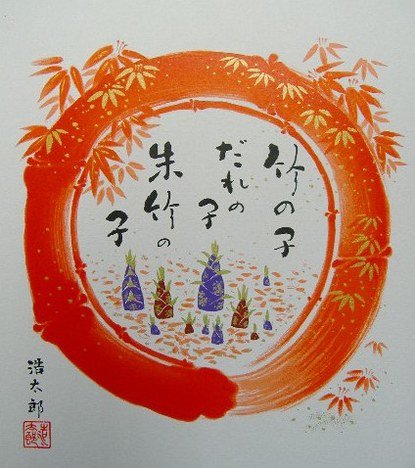 竹の子
だれの
子
朱竹の
子
浩太郎